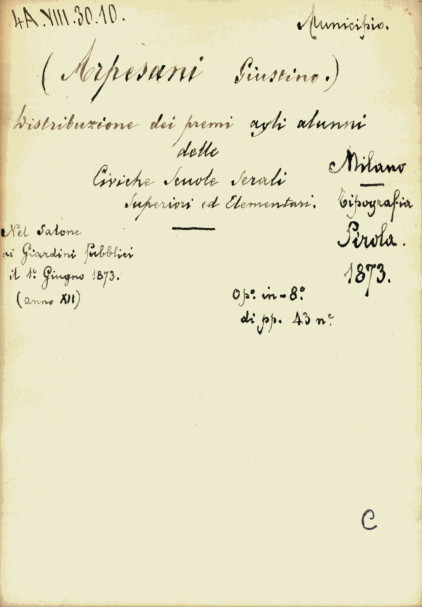 4A.VIII.30.10.
Municipio.
(Arpesani Giustino.)
Distribuzione dei premi agli alunni
delle
Civiche Scuole Serali
Superiori ed Elementari.
Milano
Tipografia
Pirola.
1873.
Nel Salone
ai Giardini Pubblici
il 1º Giugno 1873.
(anno XII)
Opº. in-8º
di pp. 43 nº
C